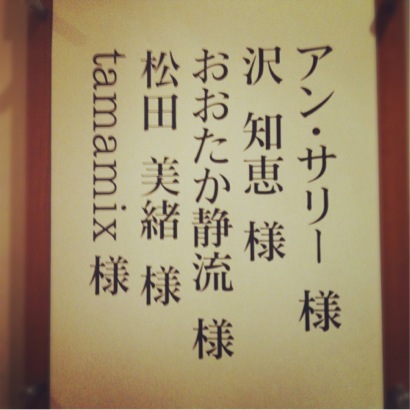 アン・サリー 様
沢 知恵 様
おおたか静流 様
松田 美緒 様
tamamix 様